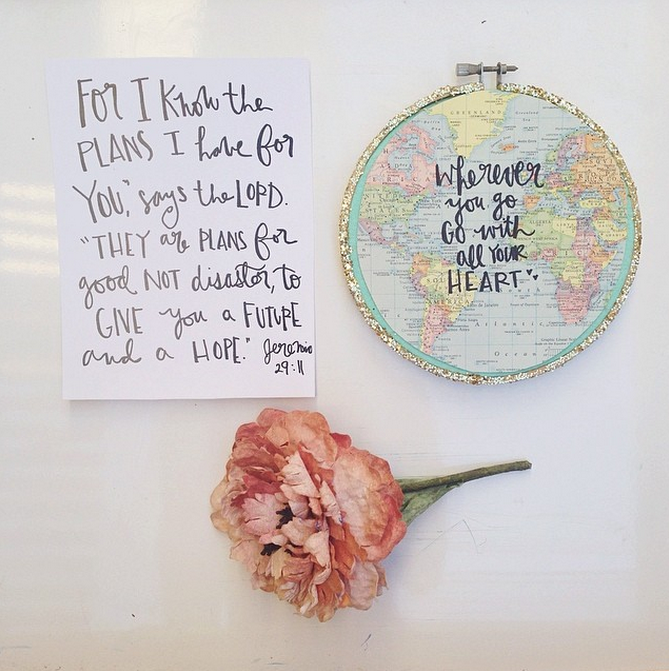 For I know the
PLANS I have for
YOU," says the LORD.
"THEY are PLANS for
good NOT disaster, to
GIVE you a FUTURE
and a HOPE." Jeremiah
29:11
GREENLAND
wherever
you go
Go with
all YOUR
HEART
Atlantic
Ocean